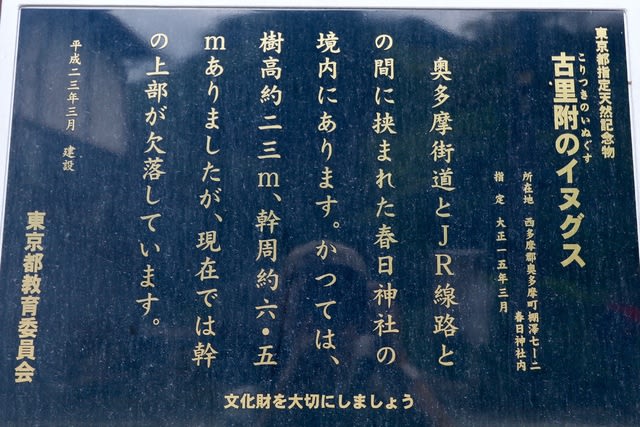 東京都指定天然記念物
こりつきのいぬぐす
古里附のイヌグス
所在地 西多摩郡奥多摩町棚澤七ー二
春日神社内
指定 大正一五年三月
奥多摩街道とJR線路と
の間に挟まれた春日神社の
境内にあります。かつては、
樹高約二三m、幹周約六・五
mありましたが、現在では幹
の上部が欠落しています。
平成二三年三月 建設
東京都教育委員会
文化財を大切にしましょう